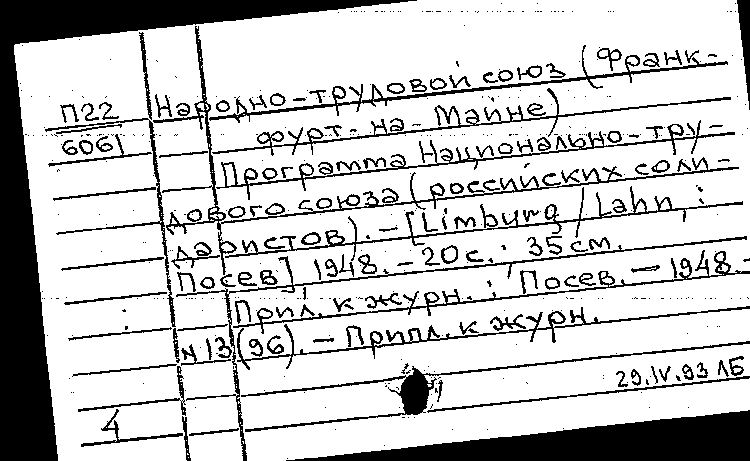 П22 Народно-трудовой союз (Франк-
6061 фурт-на-Майне)
Программа Национально-тру-
дового союза (российских соли-
даристов). - [Limburg / Lahn, :
Посев] 1948. - 20с. ; 35см.
Прил. к журн. : Посев. - 1948. -
N 13(96). - Припл. к журн.
29.IV.93 ЛБ
4